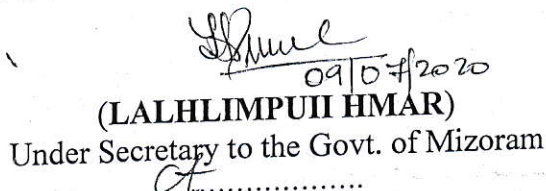 09/07/2020
(LALHLIMPUII HMAR)
Under Secretary to the Govt. of Mizoram
...................